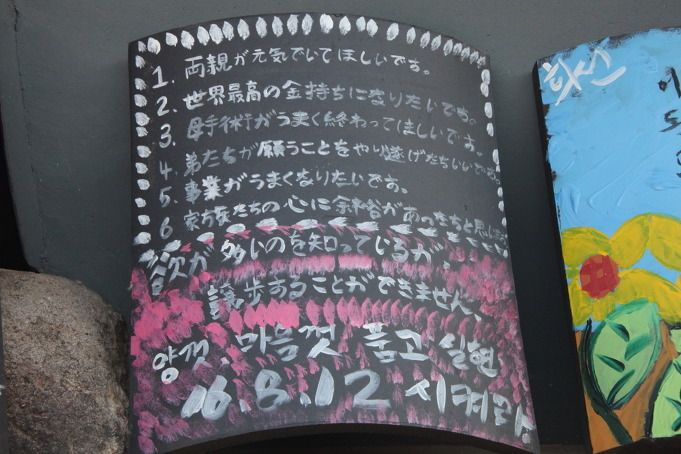 1. 両親が元気でいてほしいです。
2. 世界最高の金持ちになりたいです。
3. 母手術がうまく終わってほしいです。
4. 弟たちが願うことをやり遂げたらいいです。
5. 事業がうまくなりたいです。
6. 家族たちの心に余裕があったらと思います
欲が多いのを知っているが、
譲歩することができません。
양껏 마음껏 품고 실현
16.8.12 시켜라
희수